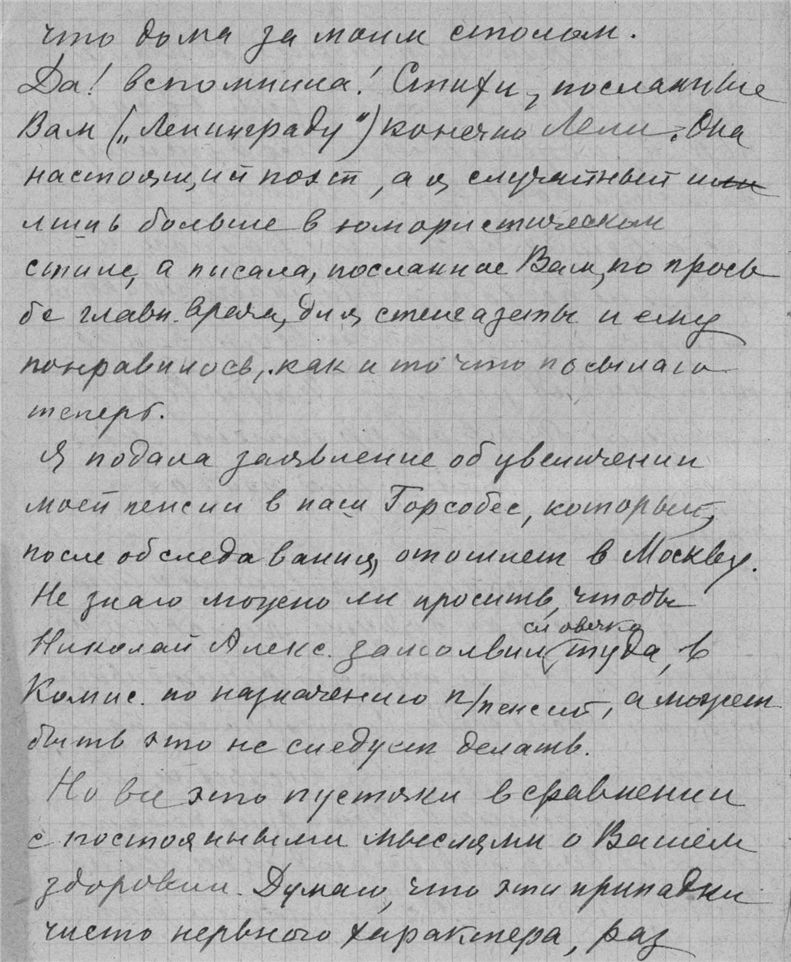 что дома за моим столом.
Да! вспомнила! Стихи, посланные
Вам („Ленинграду“) конечно Лели. Она
настоящий поэт, а я случайный или
лишь больше в юмористическом
стиле, а писала, посланное Вам, по прось
бе главн. врача, для стенгазеты и ему
понравилось, как и то что посылаю
теперь.
Я подала заявление об увеличении
моей пенсии в наш Горсобес, который,
после обследования, отошлет в Москву.
Не знаю можно ли просить, чтобы
Николай Алекс. замолвил словечко туда, в
Комис. по назначению п/пенсий, а может
быть это не следует делать.
Но все это пустяки в сравнении
с постоянными мыслями о Вашем
здоровии. Думаю, что эти припадки
чисто нервного характера, раз